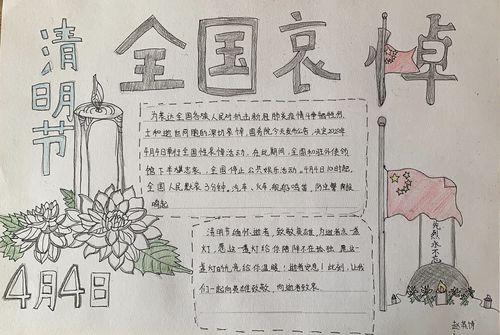 清明节
全国哀悼
为表达全国各族人民对抗击新冠肺炎疫情斗争牺牲烈
士和逝世同胞的深切哀悼,国务院今天发布公告,决定2020年
4月4日举行全国性哀悼活动,在此期间,全国和驻外使领
馆下半旗志哀,全国停止公共娱乐活动。4月4日10时起,
全国人民默哀3分钟,汽车、火车、舰船鸣笛,防空警报
鸣起
清明节缅怀逝者,致敬英雄,为逝者点一盏
灯,愿这一盏灯给你陪伴不在孤独,愿这一
盏灯的光亮给你温暖!逝者安息!此刻,让我
们一起向英雄致敬,向逝者致哀
先烈永不
4月4日